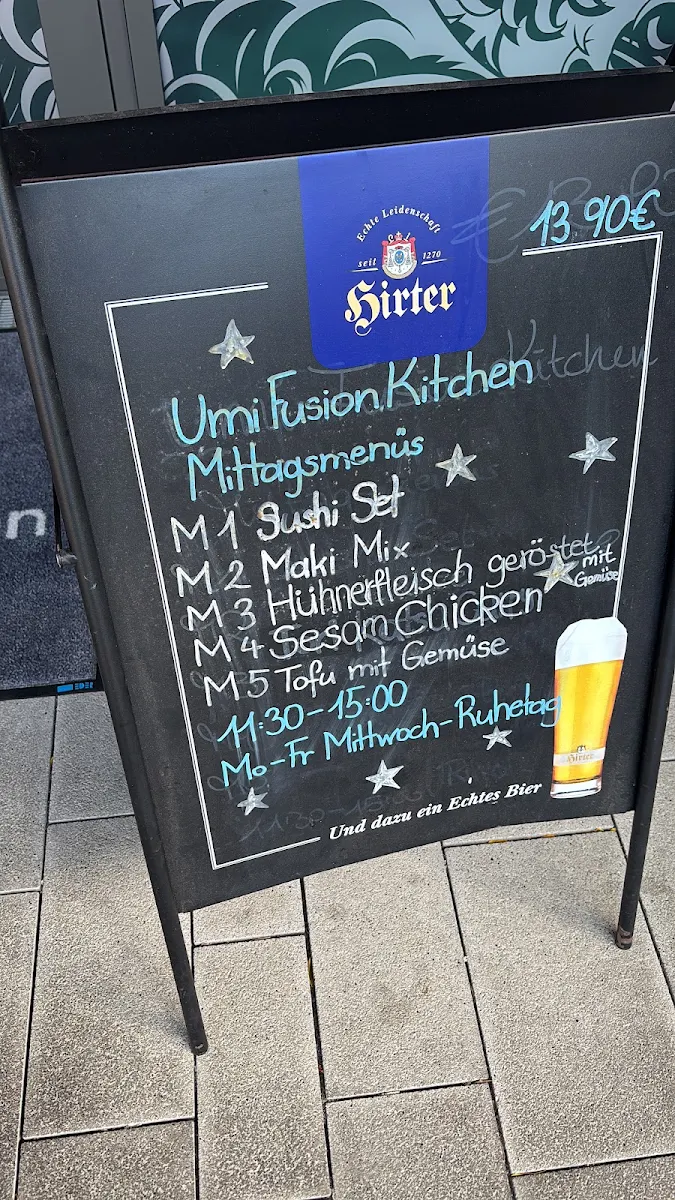 13.90€
Echte Leidenschaft
seit 1270
Hirter
Umi Fusion Kitchen
Mittagsmenüs
M1 Sushi Set
M2 Maki Mix
M3 Hühnerfleisch geröstet mit Gemüse
M4 Sesam Chicken
M5 Tofu mit Gemüse
11:30-15:00
Mo-Fr Mittwoch-Ruhetag
Hirter
Und dazu ein Echtes Bier